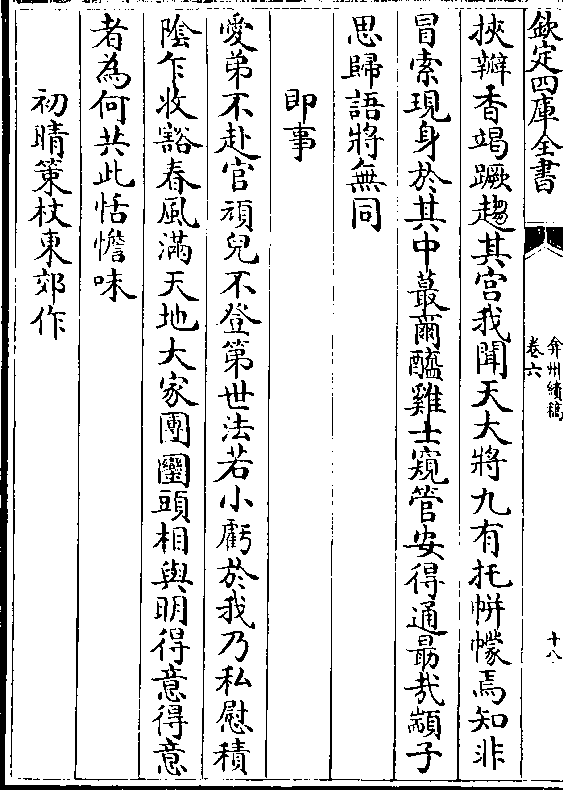 欽定四庫全書
弇州續稿
卷六
十八
挾瓣香竭蹶趨其宫我聞天大將九有托帡幪焉知非
冒索現身於其中蕞爾醯雞士窺管安得通勗哉顓子
思歸語將無同
即事
愛弟不赴官頑兒不登第世法若小虧於我乃私慰積
隂乍收豁春風滿天地大家團圞頭相與明得意得意
者為何共此恬憺味
初晴策杖東郊作